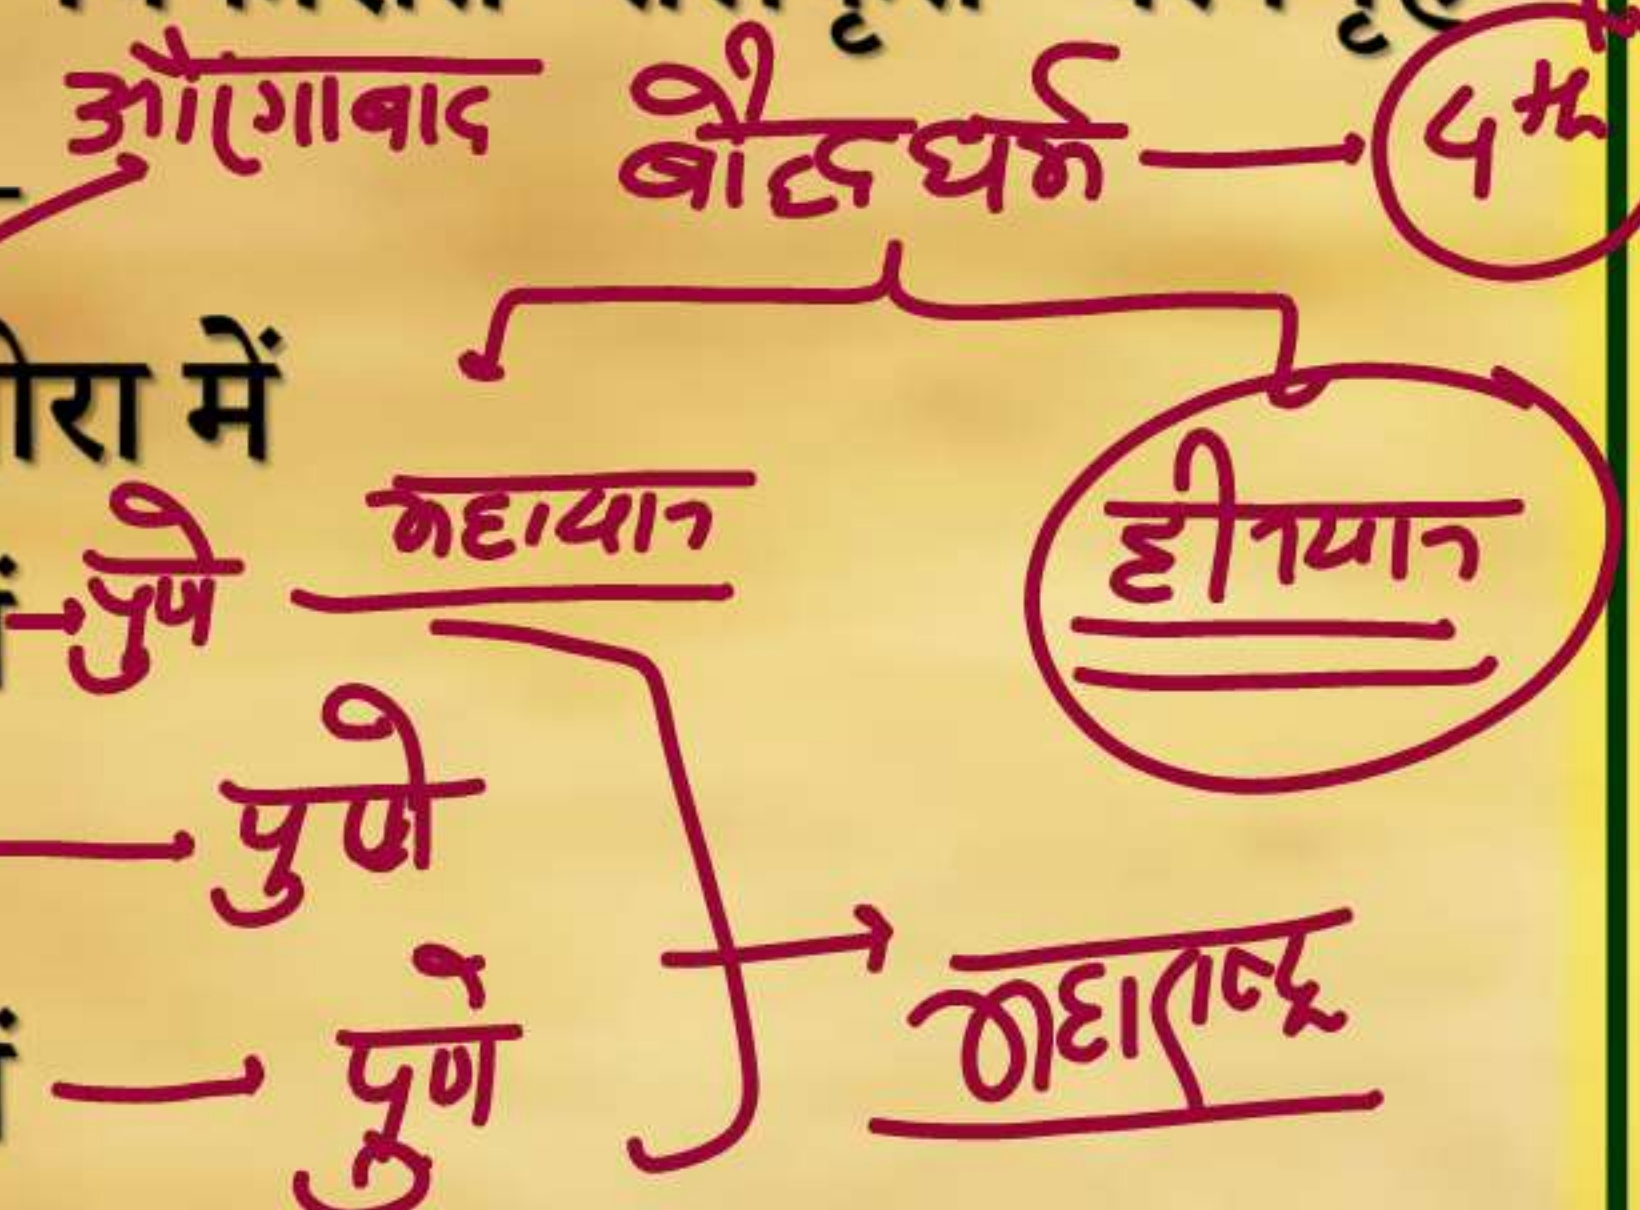 औरंगाबाद बौद्ध धर्म → 4th
में
महायान हीनयान
→ पुणे
→ पुणे
→ महाराष्ट्र
→ पुणे